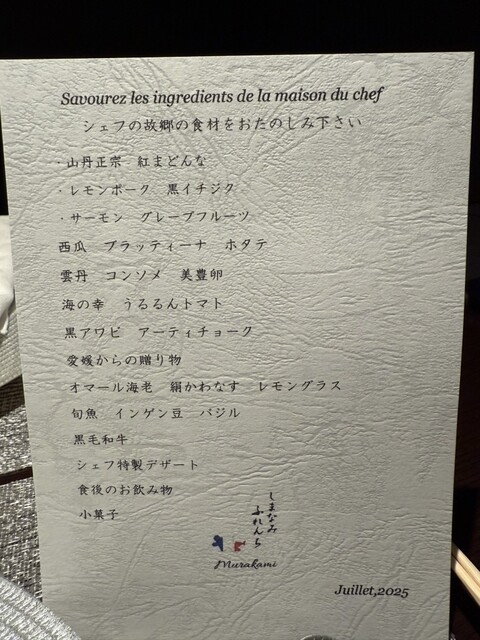 Savourez les ingredients de la maison du chef
シェフの故郷の食材をおたのしみ下さい
・山丹正宗　紅まどんな
・レモンポーク　黒イチジク
・サーモン　グレープフルーツ
西瓜　ブラッティーナ　ホタテ
雲丹　コンソメ　美豊卵
海の幸　うるるんトマト
黒アワビ　アーティチョーク
愛媛からの贈り物
オマール海老　絹かわなす　レモングラス
旬魚　インゲン豆　バジル
黒毛和牛
シェフ特製デザート
食後のお飲み物
小菓子
しまなみ
ふれんち
Murakami
Juillet,2025